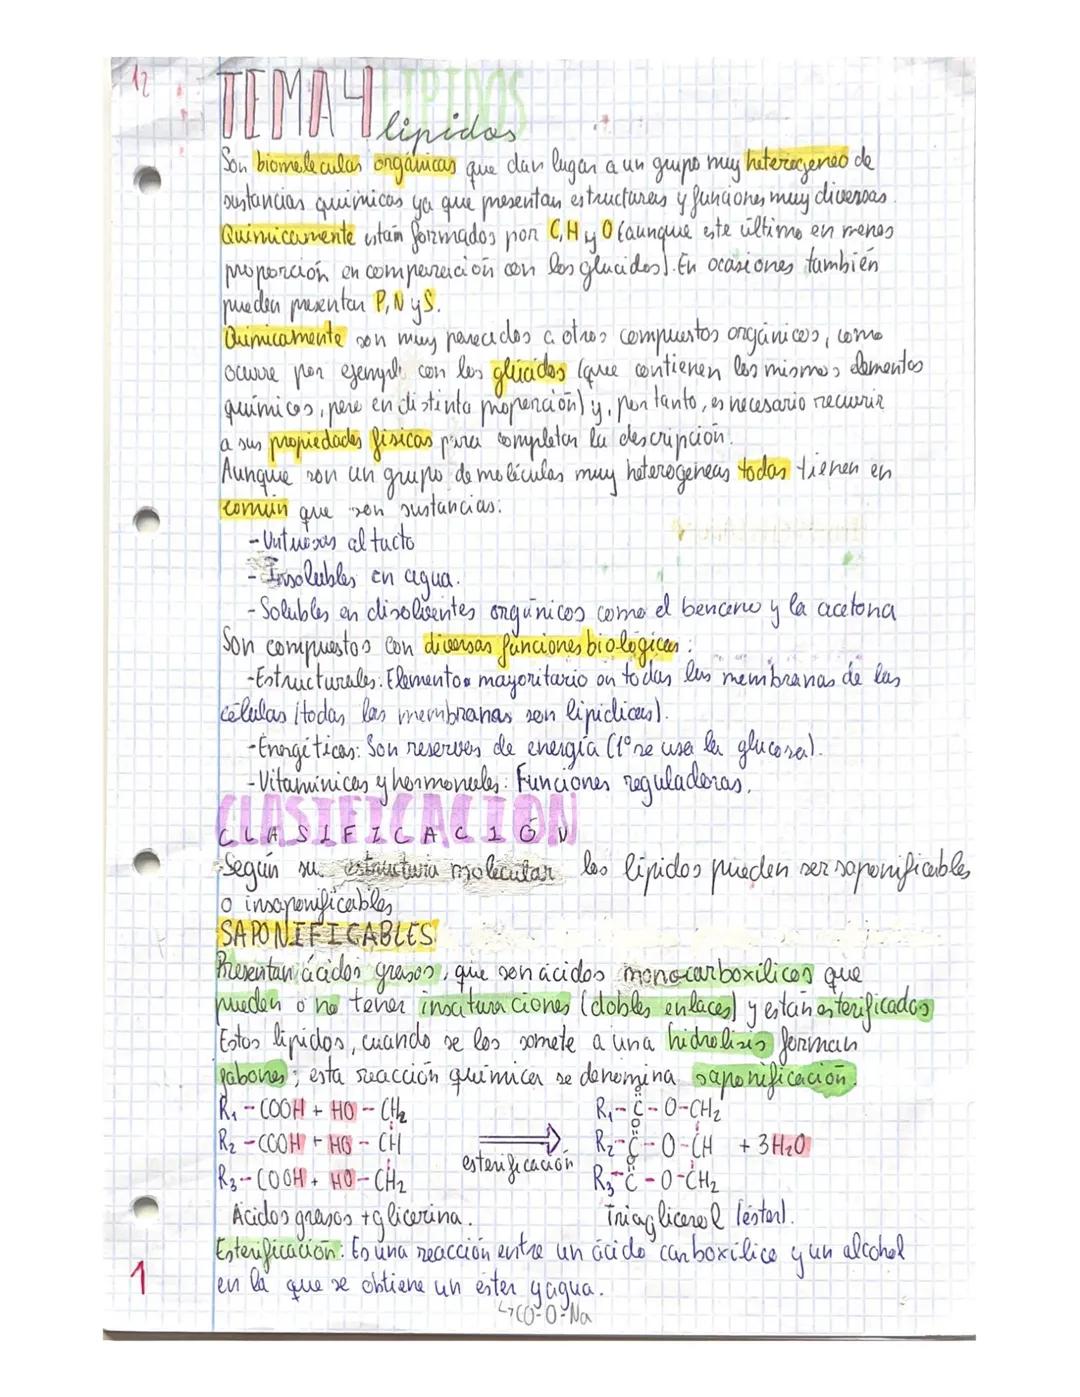 12
TEMA 4 LIPIDOS
lipidos
Son biomoleculas orgánicas que dan lugar a un grupo muy heterogéneo de
sustancias químicas ya que presentan estructuras y funciones muy diversas.
Químicamente están formados por C, H y O (aunque este último en menos
proporción en comparación con los glúcidos). En ocasiones también
pueden presentar P, N y S.
Químicamente son muy parecidos a otros compuestos orgánicos, como
ocurre por ejemplo con los glúcidos (que contienen los mismos elementos
químicos, pero en distinta proporción) y, por tanto, es necesario recurrir
a sus propiedades físicas para completar la descripción.
Aunque son un grupo de moléculas muy heterogéneas todas tienen en
común que son sustancias:
- Untuosas al tacto
- Insolubles en agua.
- Solubles en disolventes orgánicos como el benceno y la acetona
Son compuestos con diversas funciones biológicas:
-Estructurales: Elemento mayoritario en todas las membranas de las
células (todas las membranas son lipídicas).
-Energéticas: Son reservas de energía (1º se usa la glucosa).
-Vitamínicas y hormonales: Funciones reguladoras.
CLASIFICACION
CLASIFICACIÓN
Según su estructura molecular los lípidos pueden ser saponificables
o insaponificables
SAPONIFICABLES
Presentan ácidos grasos, que son ácidos monocarboxílicos que
pueden o no tener insaturaciones (dobles enlaces) y están esterificados
Estos lípidos, cuando se los somete a una hidrolisis forman
jabones; esta reacción química se denomina saponificación.
R₁-COOH + HO-CH₂ R₁-C-O-CH₂
R₂-COOH + HO-CH R₂-C-O-CH + 3H₂O
esterificación
R₃-COOH + HO-CH₂ R₃-C-O-CH₂
Ácidos grasos + glicerina. Triaglicerol (éster).
Esterificación: Es una reacción entre un ácido carboxílico y un alcohol
en la que se obtiene un éster y agua.
↳CO-O-Na
1